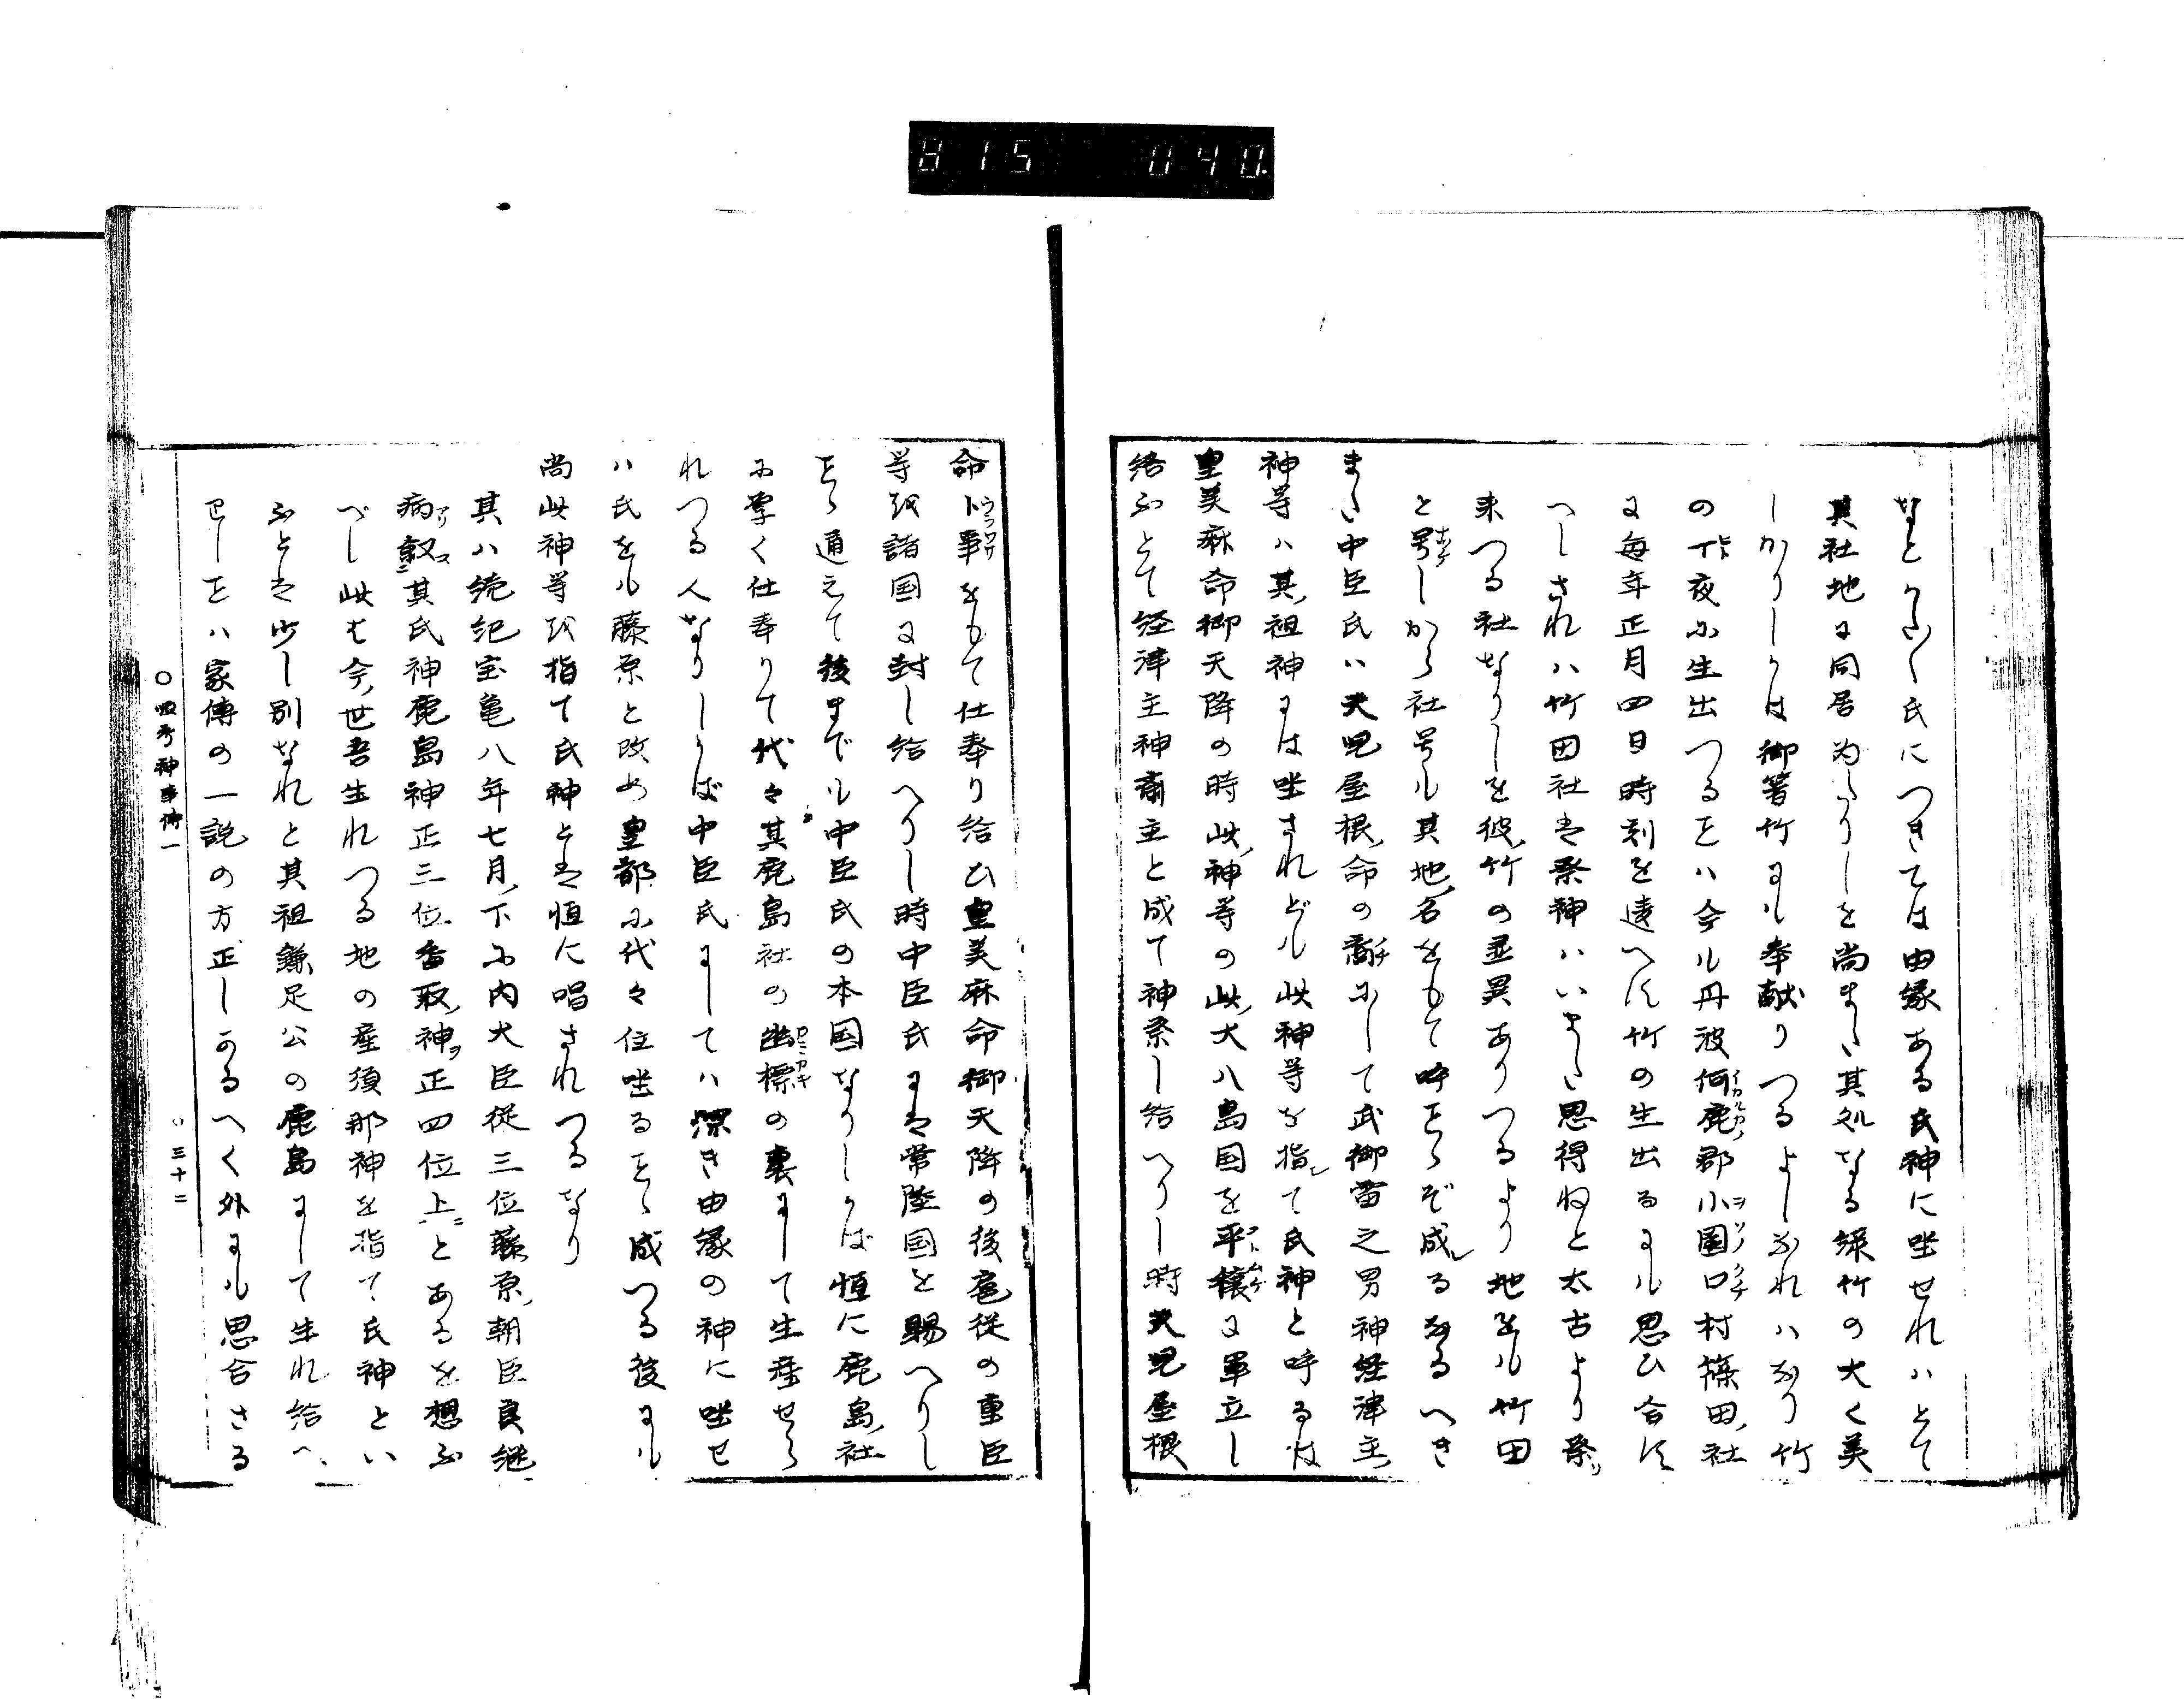 815 040
なとかたく氏につきては由縁ある氏神に坐せれハとて
其社地に同居為たりしを尚また其処なる緑竹の大く美
しかりしかは御箸竹にも奉献りつるよしなれハなり竹
の丁夜に生出つることハ今も丹波何鹿郡小園口村篠田社
に毎年正月四日時刻を違へす竹の生出るにも思ひ合す
へしされハ竹田社は祭神ハいまた思得ねと太古より祭
来つる社なりしを彼竹の霊異ありつるより地をも竹田
と号しから社号も其地名をもて呼ことぞ成るなるへき
また中臣氏ハ天児屋根命の裔にして武御雷之男神経津主
神等ハ其祖神には坐されども此神等を指て氏神と呼るは
皇美麻命御天降の時此神等の此大八島国を平穣に軍立し
給ふとて経津主神斎主と成て神祭し給へりし時天児屋根
命卜事をもて仕奉り給ひ皇美麻命御天降の後扈従の重臣
等を諸国に封し給へりし時中臣氏には常陸国を賜へりし
こと通えて後までも中臣氏の本国なりしかば恒に鹿島社
に掌く仕奉りて代々其鹿島社の幽標の裏にして生産せら
れつる人なりしかば中臣氏にしてハ深き由縁の神に坐せ
ハ氏をも藤原と改め皇都に代々位坐ること成つる後にも
尚此神等を指て氏神とは恒に唱されつるなり
其ハ続紀宝亀八年七月下に内大臣従三位藤原朝臣良継
病叙其氏神鹿島神正三位香取神正四位上とあるを想ふ
べし此は今世吾生れつる地の産須那神を指て氏神とい
ふとは少し別なれと其祖鎌足公の鹿島にして生れ給へ
りしことハ家傳の一説の方正しかるへく外にも思合さる
神事傳一
三十二